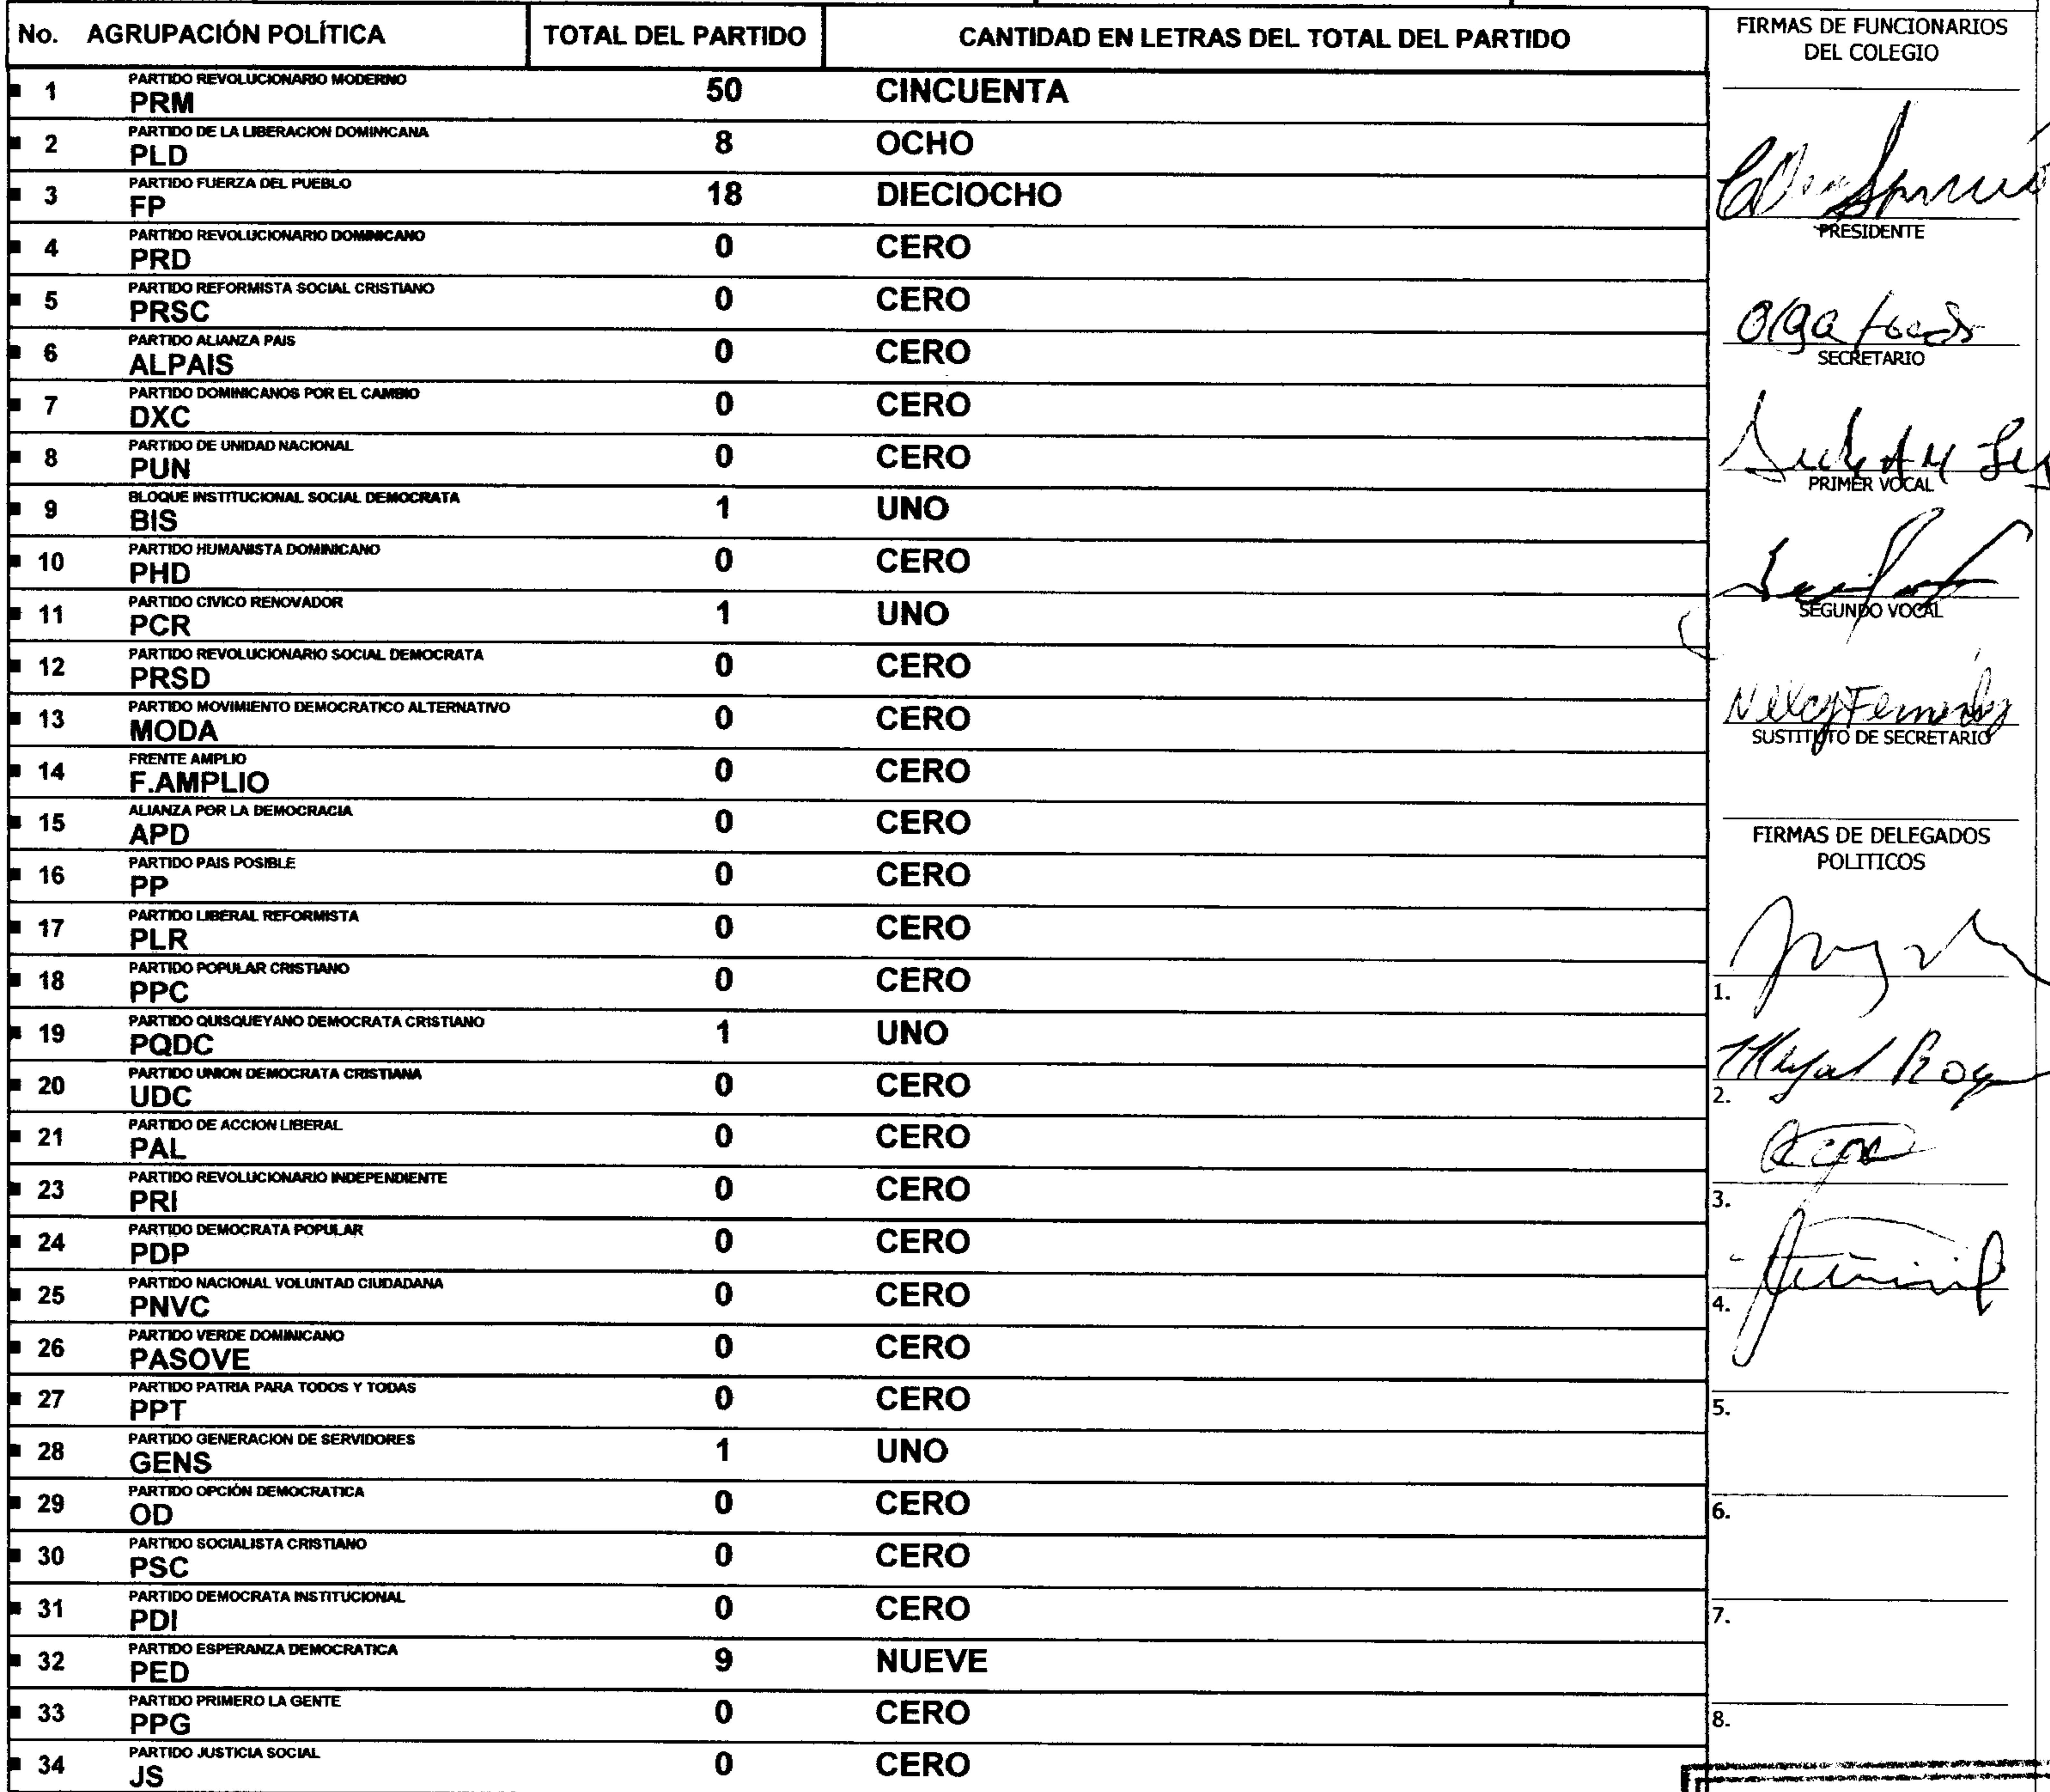 No. AGRUPACIÓN POLÍTICA TOTAL DEL PARTIDO CANTIDAD EN LETRAS DEL TOTAL DEL PARTIDO
PARTIDO REVOLUCIONARIO MODERNO
1 PRM 50 CINCUENTA
PARTIDO DE LA LIBERACION DOMINICANA
2 PLD 8 OCHO
PARTIDO FUERZA DEL PUEBLO
3 FP 18 DIECIOCHO
PARTIDO REVOLUCIONARIO DOMINICANO
4 PRD 0 CERO
PARTIDO REFORMISTA SOCIAL CRISTIANO
5 PRSC 0 CERO
PARTIDO ALIANZA PAIS
6 ALPAIS 0 CERO
PARTIDO DOMINICANOS POR EL CAMBIO
7 DXC 0 CERO
PARTIDO DE UNIDAD NACIONAL
8 PUN 0 CERO
BLOQUE INSTITUCIONAL SOCIAL DEMOCRATA
9 BIS 1 UNO
PARTIDO HUMANISTA DOMINICANO
10 PHD 0 CERO
PARTIDO CIVICO RENOVADOR
11 PCR 1 UNO
PARTIDO REVOLUCIONARIO SOCIAL DEMOCRATA
12 PRSD 0 CERO
PARTIDO MOVIMIENTO DEMOCRATICO ALTERNATIVO
13 MODA 0 CERO
FRENTE AMPLIO
14 F.AMPLIO 0 CERO
ALIANZA POR LA DEMOCRACIA
15 APD 0 CERO
PARTIDO PAIS POSIBLE
16 PP 0 CERO
PARTIDO LIBERAL REFORMISTA
17 PLR 0 CERO
PARTIDO POPULAR CRISTIANO
18 PPC 0 CERO
PARTIDO QUISQUEYANO DEMOCRATA CRISTIANO
19 PQDC 1 UNO
PARTIDO UNION DEMOCRATA CRISTIANA
20 UDC 0 CERO
PARTIDO DE ACCION LIBERAL
21 PAL 0 CERO
PARTIDO REVOLUCIONARIO INDEPENDIENTE
23 PRI 0 CERO
PARTIDO DEMOCRATA POPULAR
24 PDP 0 CERO
PARTIDO NACIONAL VOLUNTAD CIUDADANA
25 PNVC 0 CERO
PARTIDO VERDE DOMINICANO
26 PASOVE 0 CERO
PARTIDO PATRIA PARA TODOS Y TODAS
27 PPT 0 CERO
PARTIDO GENERACION DE SERVIDORES
28 GENS 1 UNO
PARTIDO OPCIÓN DEMOCRATICA
29 OD 0 CERO
PARTIDO SOCIALISTA CRISTIANO
30 PSC 0 CERO
PARTIDO DEMOCRATA INSTITUCIONAL
31 PDI 0 CERO
PARTIDO ESPERANZA DEMOCRATICA
32 PED 9 NUEVE
PARTIDO PRIMERO LA GENTE
33 PPG 0 CERO
PARTIDO JUSTICIA SOCIAL
34 JS 0 CERO
FIRMAS DE FUNCIONARIOS
DEL COLEGIO
PRESIDENTE
Olga
SECRETARIO
PRIMER VOCAL
SEGUNDO VOCAL
SUSTITUTO DE SECRETARIO
FIRMAS DE DELEGADOS
POLITICOS
1.
2.
3.
4.
5.
6.
7.
8.